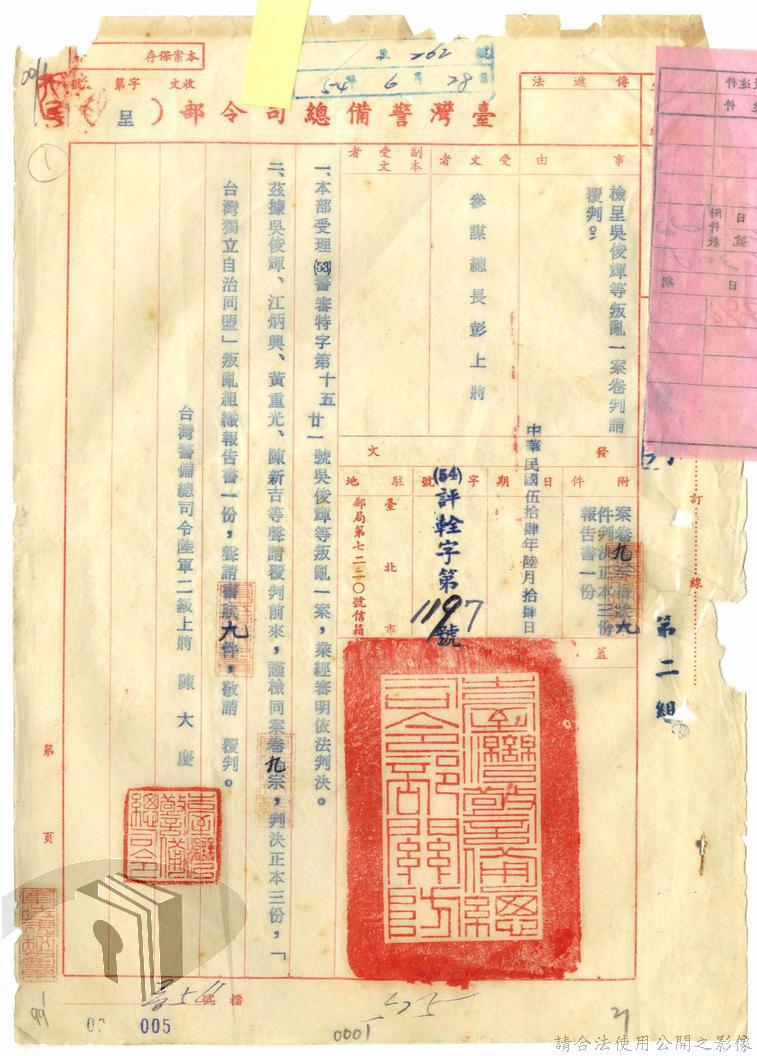 本案保存
收文 字第 號
262
54年6月28日
臺灣警備總司令部(呈)
傳遞法
事由
檢呈吳俊輝等叛亂一案卷判請
覆判。
受文者
參謀總長彭上將
副本
受文者
發文
附件
案卷九宗書狀九
件判決正本三份
報告書一份
日期
中華民國伍拾肆年陸月拾肆日
字號
(54)評輇字第1197號
駐地
臺北市
郵局第七二二〇號信箱
蓋
一、本部受理(53)警審特字第十五廿一號吳俊輝等叛亂一案,業經審明依法判決。
二、茲據吳俊輝、江炳興、黃重光、陳新吉等聲請覆判前來,謹檢同案卷九宗,判決正本三份,「
台灣獨立自治同盟」叛亂組織報告書一份,聲請書狀九件,敬請 覆判。
台灣警備總司令陸軍二級上將 陳大慶
臺灣警備總司令部關防
臺灣警備總司令
第二組
訂線
第 頁
檔號
005
0001
請合法使用公開之影像